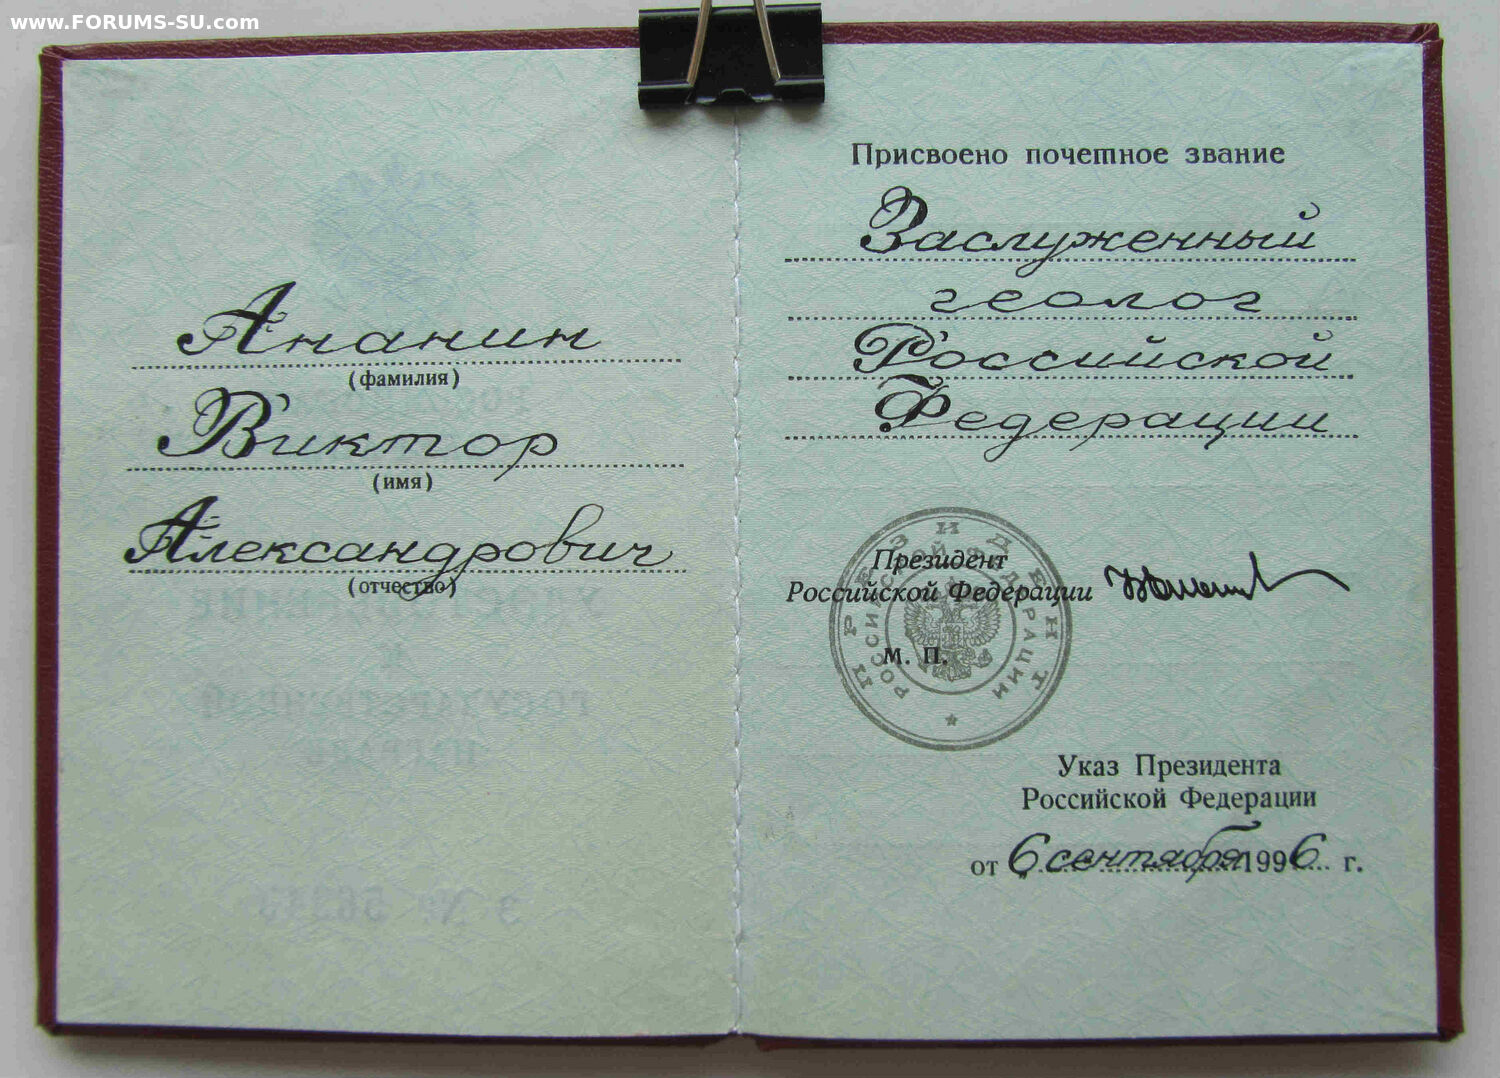 www.FORUMS-SU.com
Ананин
(фамилия)
Виктор
(имя)
Александрович
(отчество)
УДОСТОВЕРЕНИЕ
К
ГОСУДАРСТВЕННОЙ
НАГРАДЕ
Присвоено почетное звание
Заслуженный
геолог
Российской
Федерации
Президент
Российской Федерации
М. П.
ПРЕЗИДЕНТ
РОССИЙСКОЙ ФЕДЕРАЦИИ
Указ Президента
Российской Федерации
от 6 сентября 1996 г.